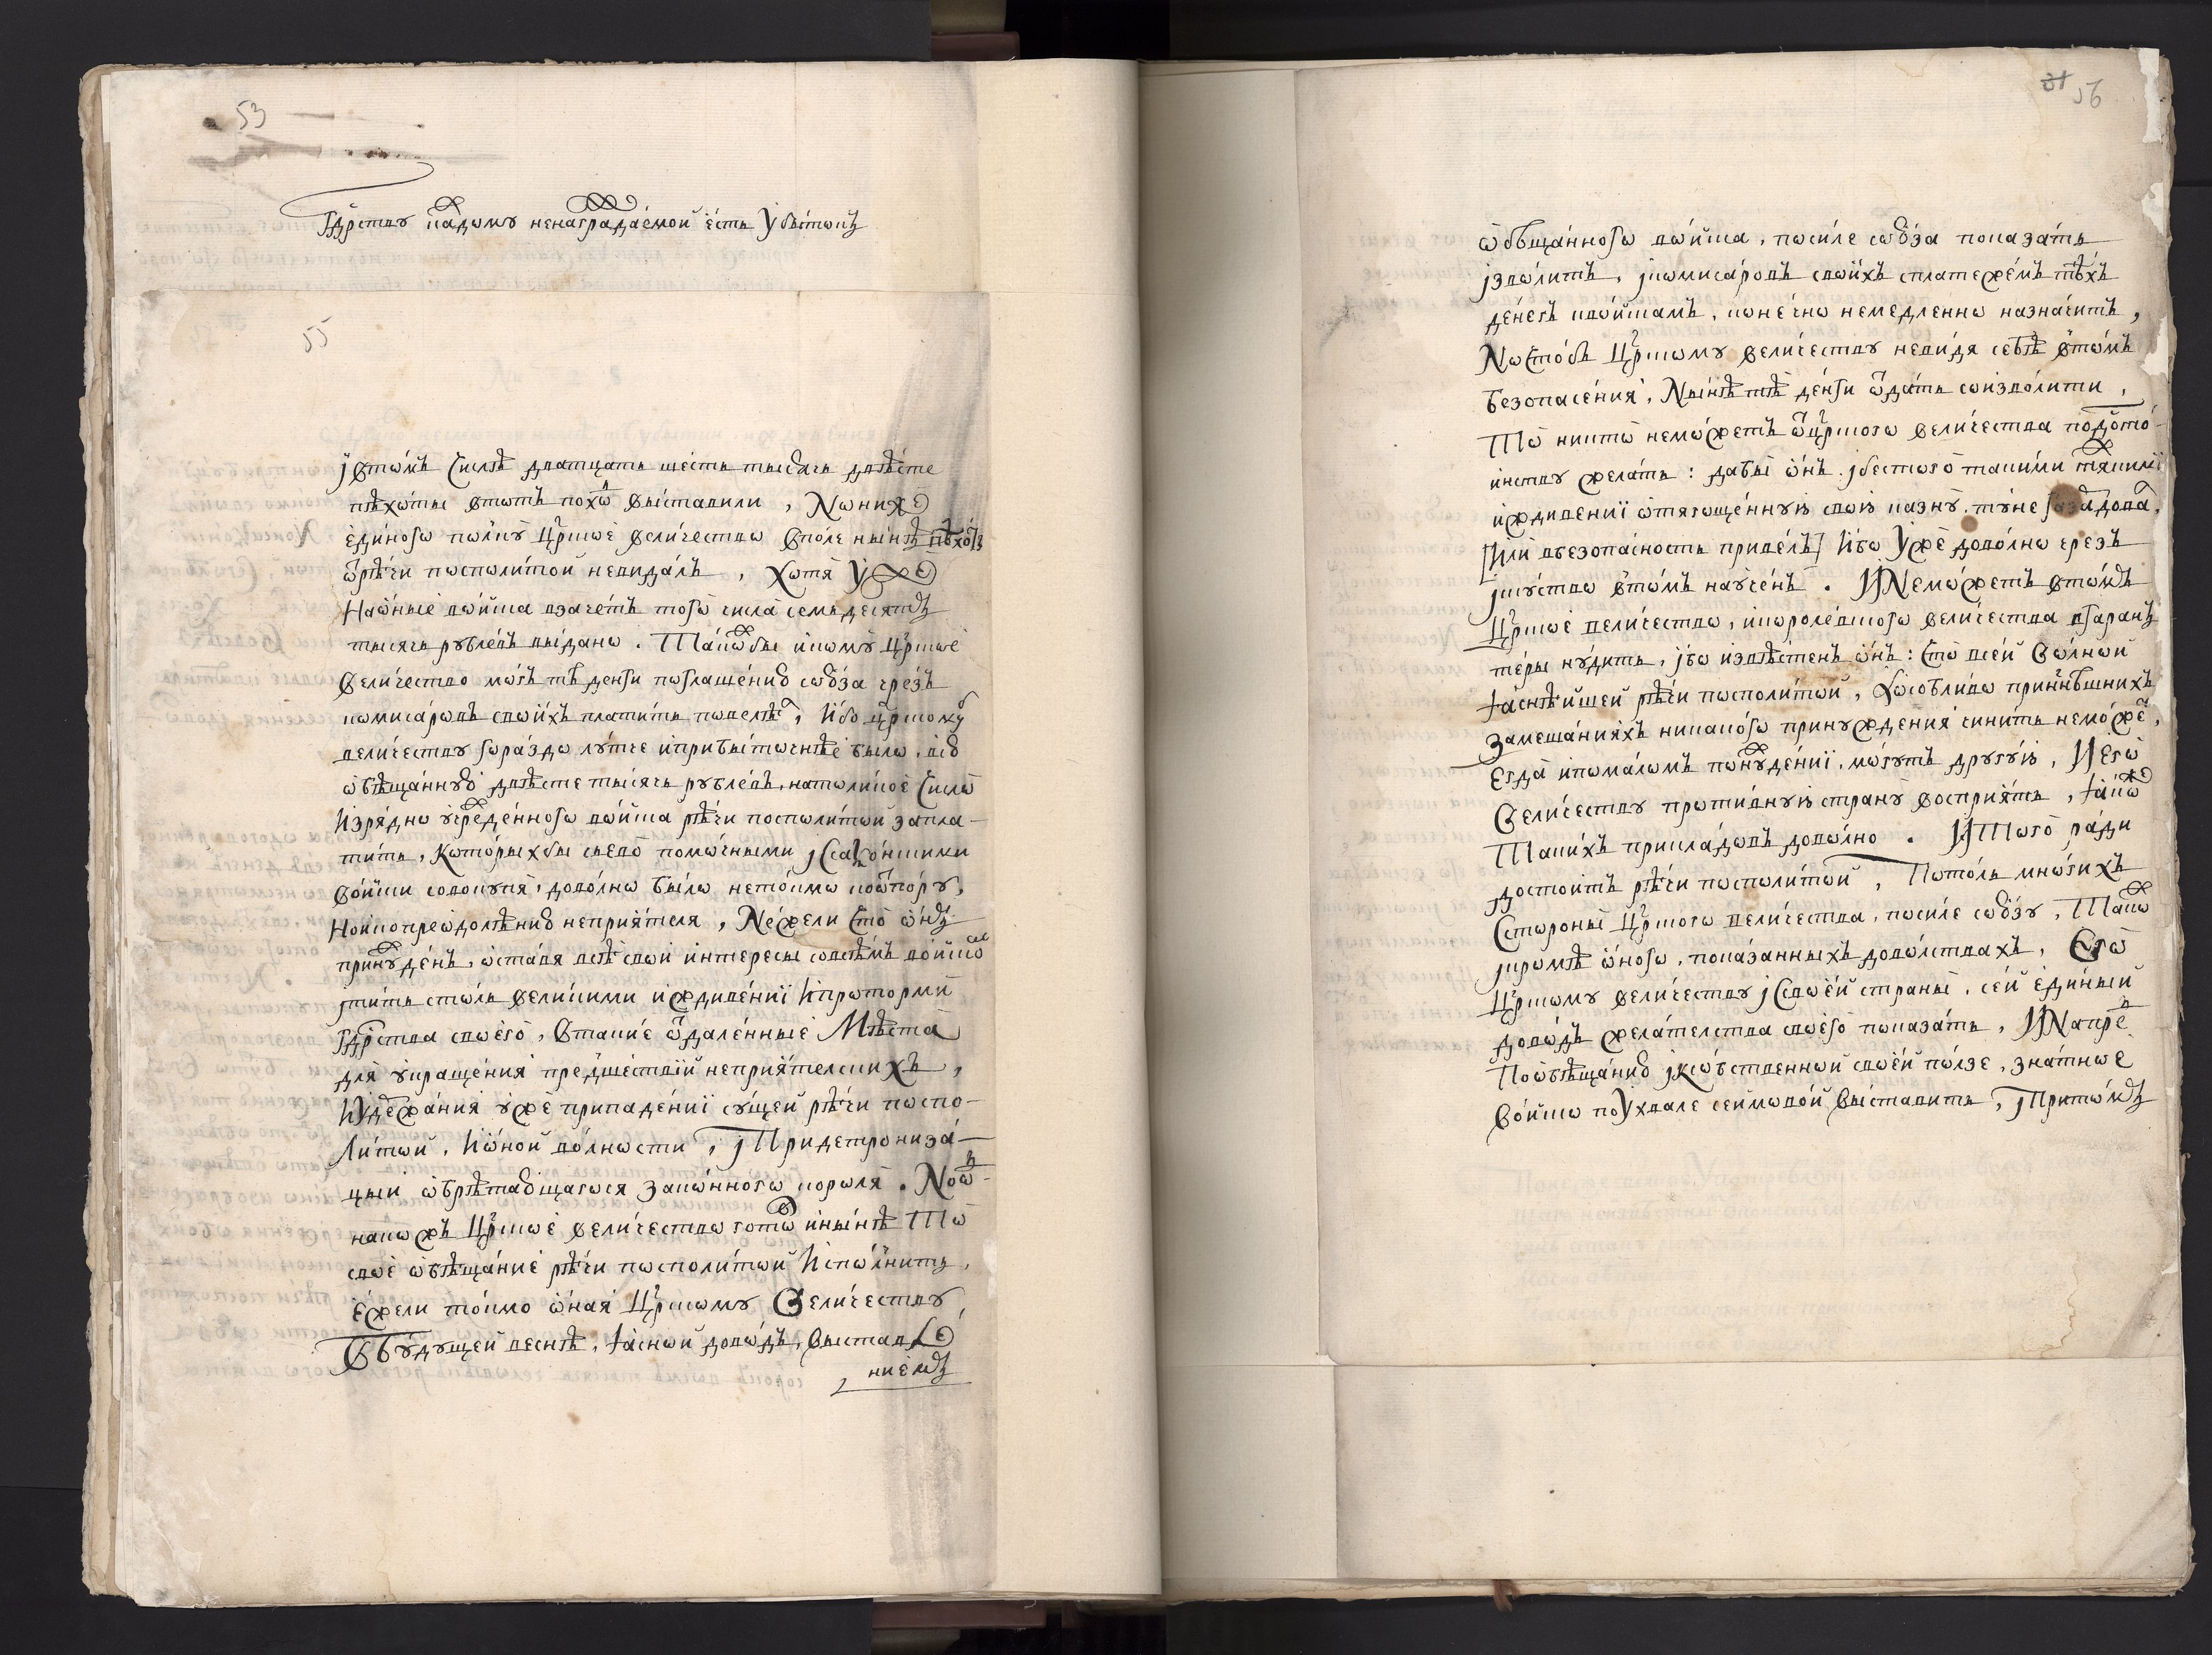 53
Гдрству кадому ненаградаемой есть Убытокъ
55
івтомъ числѣ дватцать шесть тысячь двѣсте
пѣхоты втотъ похѡд выставили, Нониже
единого полку Црское величество вполе нынѣ пѣхоты
ѿрѣчи посполитой невидалъ, Хотя Уже
Наѡные воиска взачетъ того числа семьдесятъ
тысячь рублевъ выдано. Такѡбы икому Црское
величество могъ тѣ денги погласheнию союза чрезъ
комисаровъ своихъ платить повелѣт, Ибо црскому
величеству гораздо лутче иприбыточнѣе было, всю
ѡбѣщанную двѣсте тысячь рублевъ, натоликое число
Изрядно учрежденного воиска рѣчи посполитой запла-
тить, Которыхбы сьево помочными іСсаксонскими
воиски совокупя, доволно было нетокмо коѿпору,
Ноикопреѡдолѣнию неприятеля, Нежели Что ѡнъ
принужденъ, ѡставя всѣ свои интересы совсѣмъ воискомъ
ітить столь великими иждивении Ипроторми
Гдрства своего, Втакие ѿдаленные Мѣста
для укращения предшествий неприятелскихъ,
Иудержания уже припадении сущей рѣчи поспо-
литой, Иѡной волности, іПридетрониза-
цыи ѡбрѣтающагося законного короля. Ноѡд-
накожъ Црское величество готов инынѣ То
свое ѡбѣщание рѣчи посполитой Исполнить,
Ежели токмо ѡная Црскому Величеству
Вбудущей веснѣ, Ясной доводъ, выставле
ниемъ
31 56
ѡбѣщанного воиска, посиле союза показать
ізволитъ, ікомисаровъ своихъ сплатежемъ тѣхъ
денегъ квоискамъ, конечно немедленно назначитъ,
Ночтобъ Црскому величеству невидя себѣ втомъ
безопасения, Нынѣ тѣ денги ѿдать соизволити,
То никто неможетъ ѿЦрского величества подосто-
инству желать: дабы ѡнъ ібестого такими тяжкими
иждивении ѡтягощенную свою казну, туне
[Или вбезопасность привелъ] Ибо Уже доволно чрезъ
іскуство втомъ наученъ. ИНеможетъ втомъ
Црское величество, икоролевского величества вгаран
теры нудить, ібо извѣстенъ ѡнъ: Что всей Волной
Яснѣйшей рѣчи посполитой, Ѡсобливо принынѣшнихъ
Замешанияхъ никакого принуждения чинить неможет,
Егда икомаломъ понуждении, могутъ другую, Иего
Величеству противную страну восприять, Якоже
Такихъ прикладовъ доволно. ИТого ради
достоитъ рѣчи посполитой, Потоль многихъ
Сстороны Црского величества, посиле союзу, Тако
ікромѣ ѡного, показанныхъ доволствахъ, Его
Црскому величеству іСсвоей страны, сей единый
доводъ желателства своего показать, ИНапред
Поѡбѣщанию іКсобственной своей ползе, знатное
Воиско поУхвале сеймовой выставить, іПритомъ